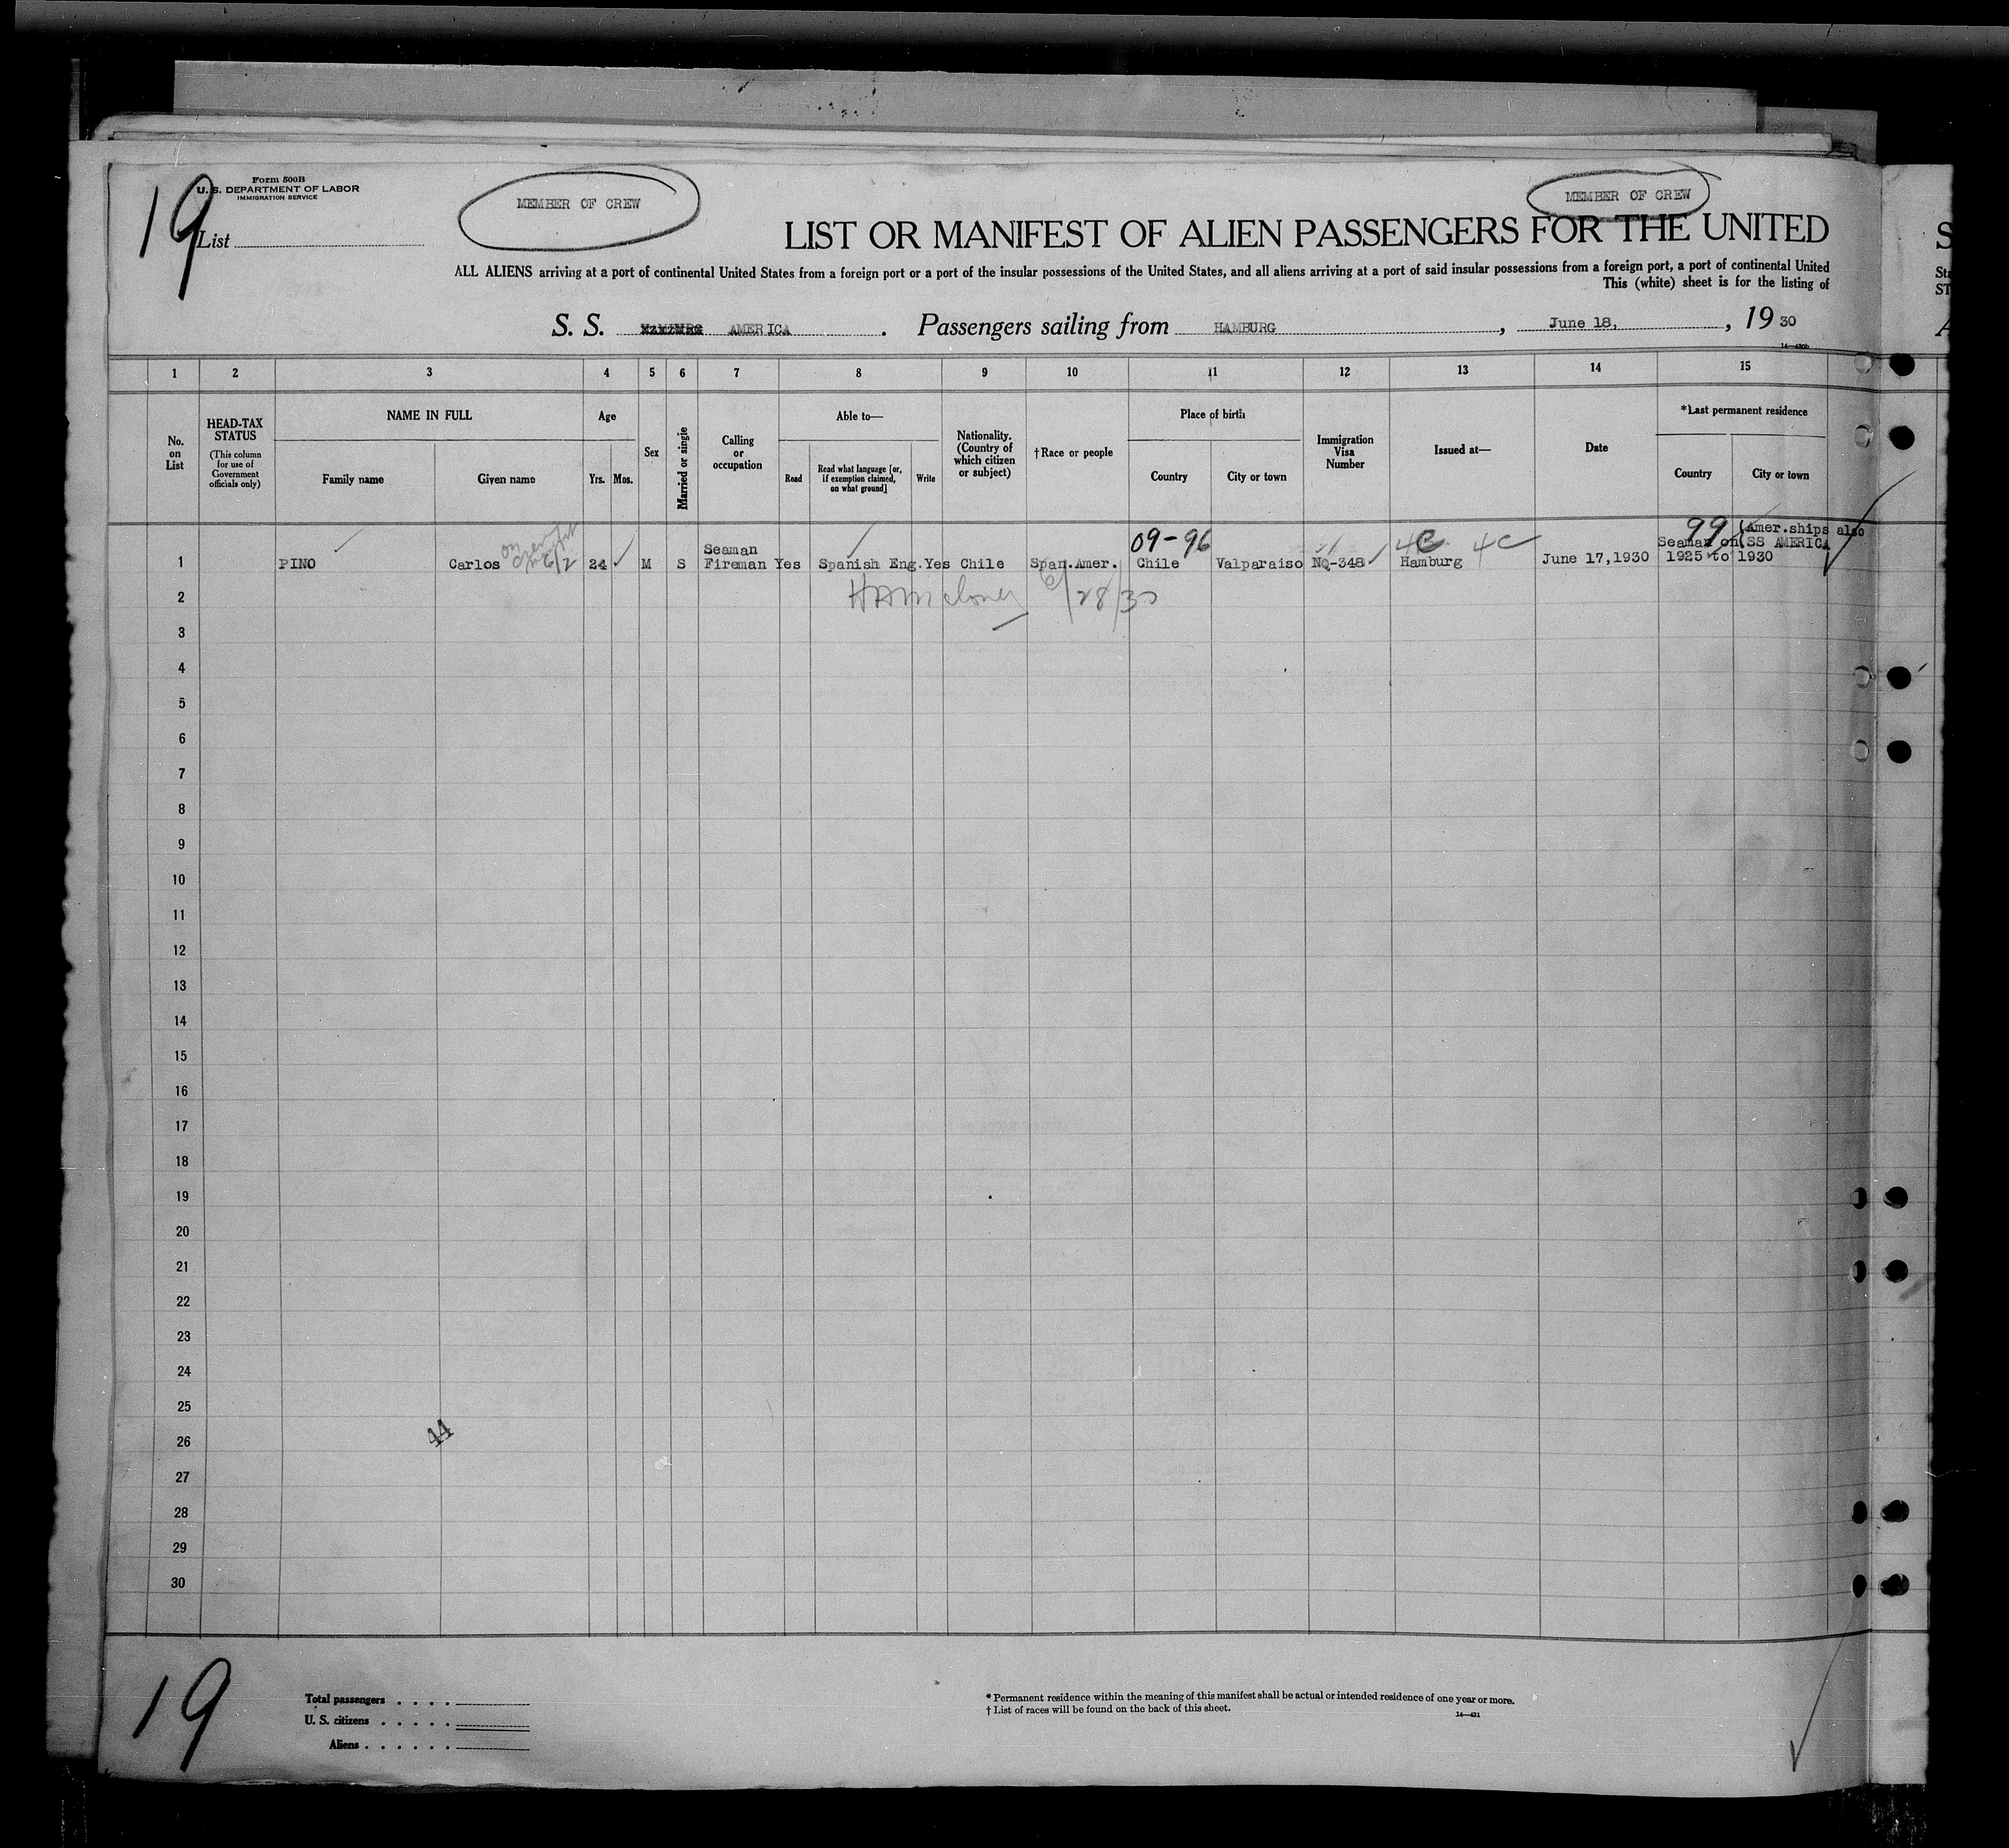 Form 500B
U. S. DEPARTMENT OF LABOR
IMMIGRATION SERVICE
19
List
MEMBER OF CREW
MEMBER OF CREW
LIST OR MANIFEST OF ALIEN PASSENGERS FOR THE UNITED
S
ALL ALIENS arriving at a port of continental United States from a foreign port or a port of the insular possessions of the United States, and all aliens arriving at a port of said insular possessions from a foreign port, a port of continental United
Sta
This (white) sheet is for the listing of
ST
S. S. AMERICA. Passengers sailing from HAMBURG, June 18, , 19 30
A
14—430b
1 2 3 4 5 6 7 8 9 10 11 12 13 14 15
No. on List
HEAD-TAX STATUS (This column for use of Government officials only)
NAME IN FULL
Family name
Given name
Age
Yrs. Mos.
Sex
Married or single
Calling or occupation
Able to—
Read
Read what language [or, if exemption claimed, on what ground]
Write
Nationality. (Country of which citizen or subject)
†Race or people
Place of birth
Country
City or town
Immigration Visa Number
Issued at—
Date
*Last permanent residence
Country
City or town
09-96 4C 99 (Amer.ships also
Seaman Seaman on (SS AMERICA
1 PINO Carlos 24 M S Fireman Yes Spanish Eng. Yes Chile Span.Amer. Chile Valparaiso NQ-348 Hamburg June 17,1930 1925 to 1930
2 6/28/30
3
4
5
6
7
8
9
10
11
12
13
14
15
16
17
18
19
20
21
22
23
24
25
26
44
27
28
29
30
19
Total passengers . . . .
U. S. citizens . . . . .
Aliens . . . . . .
* Permanent residence within the meaning of this manifest shall be actual or intended residence of one year or more.
† List of races will be found on the back of this sheet.
14—431